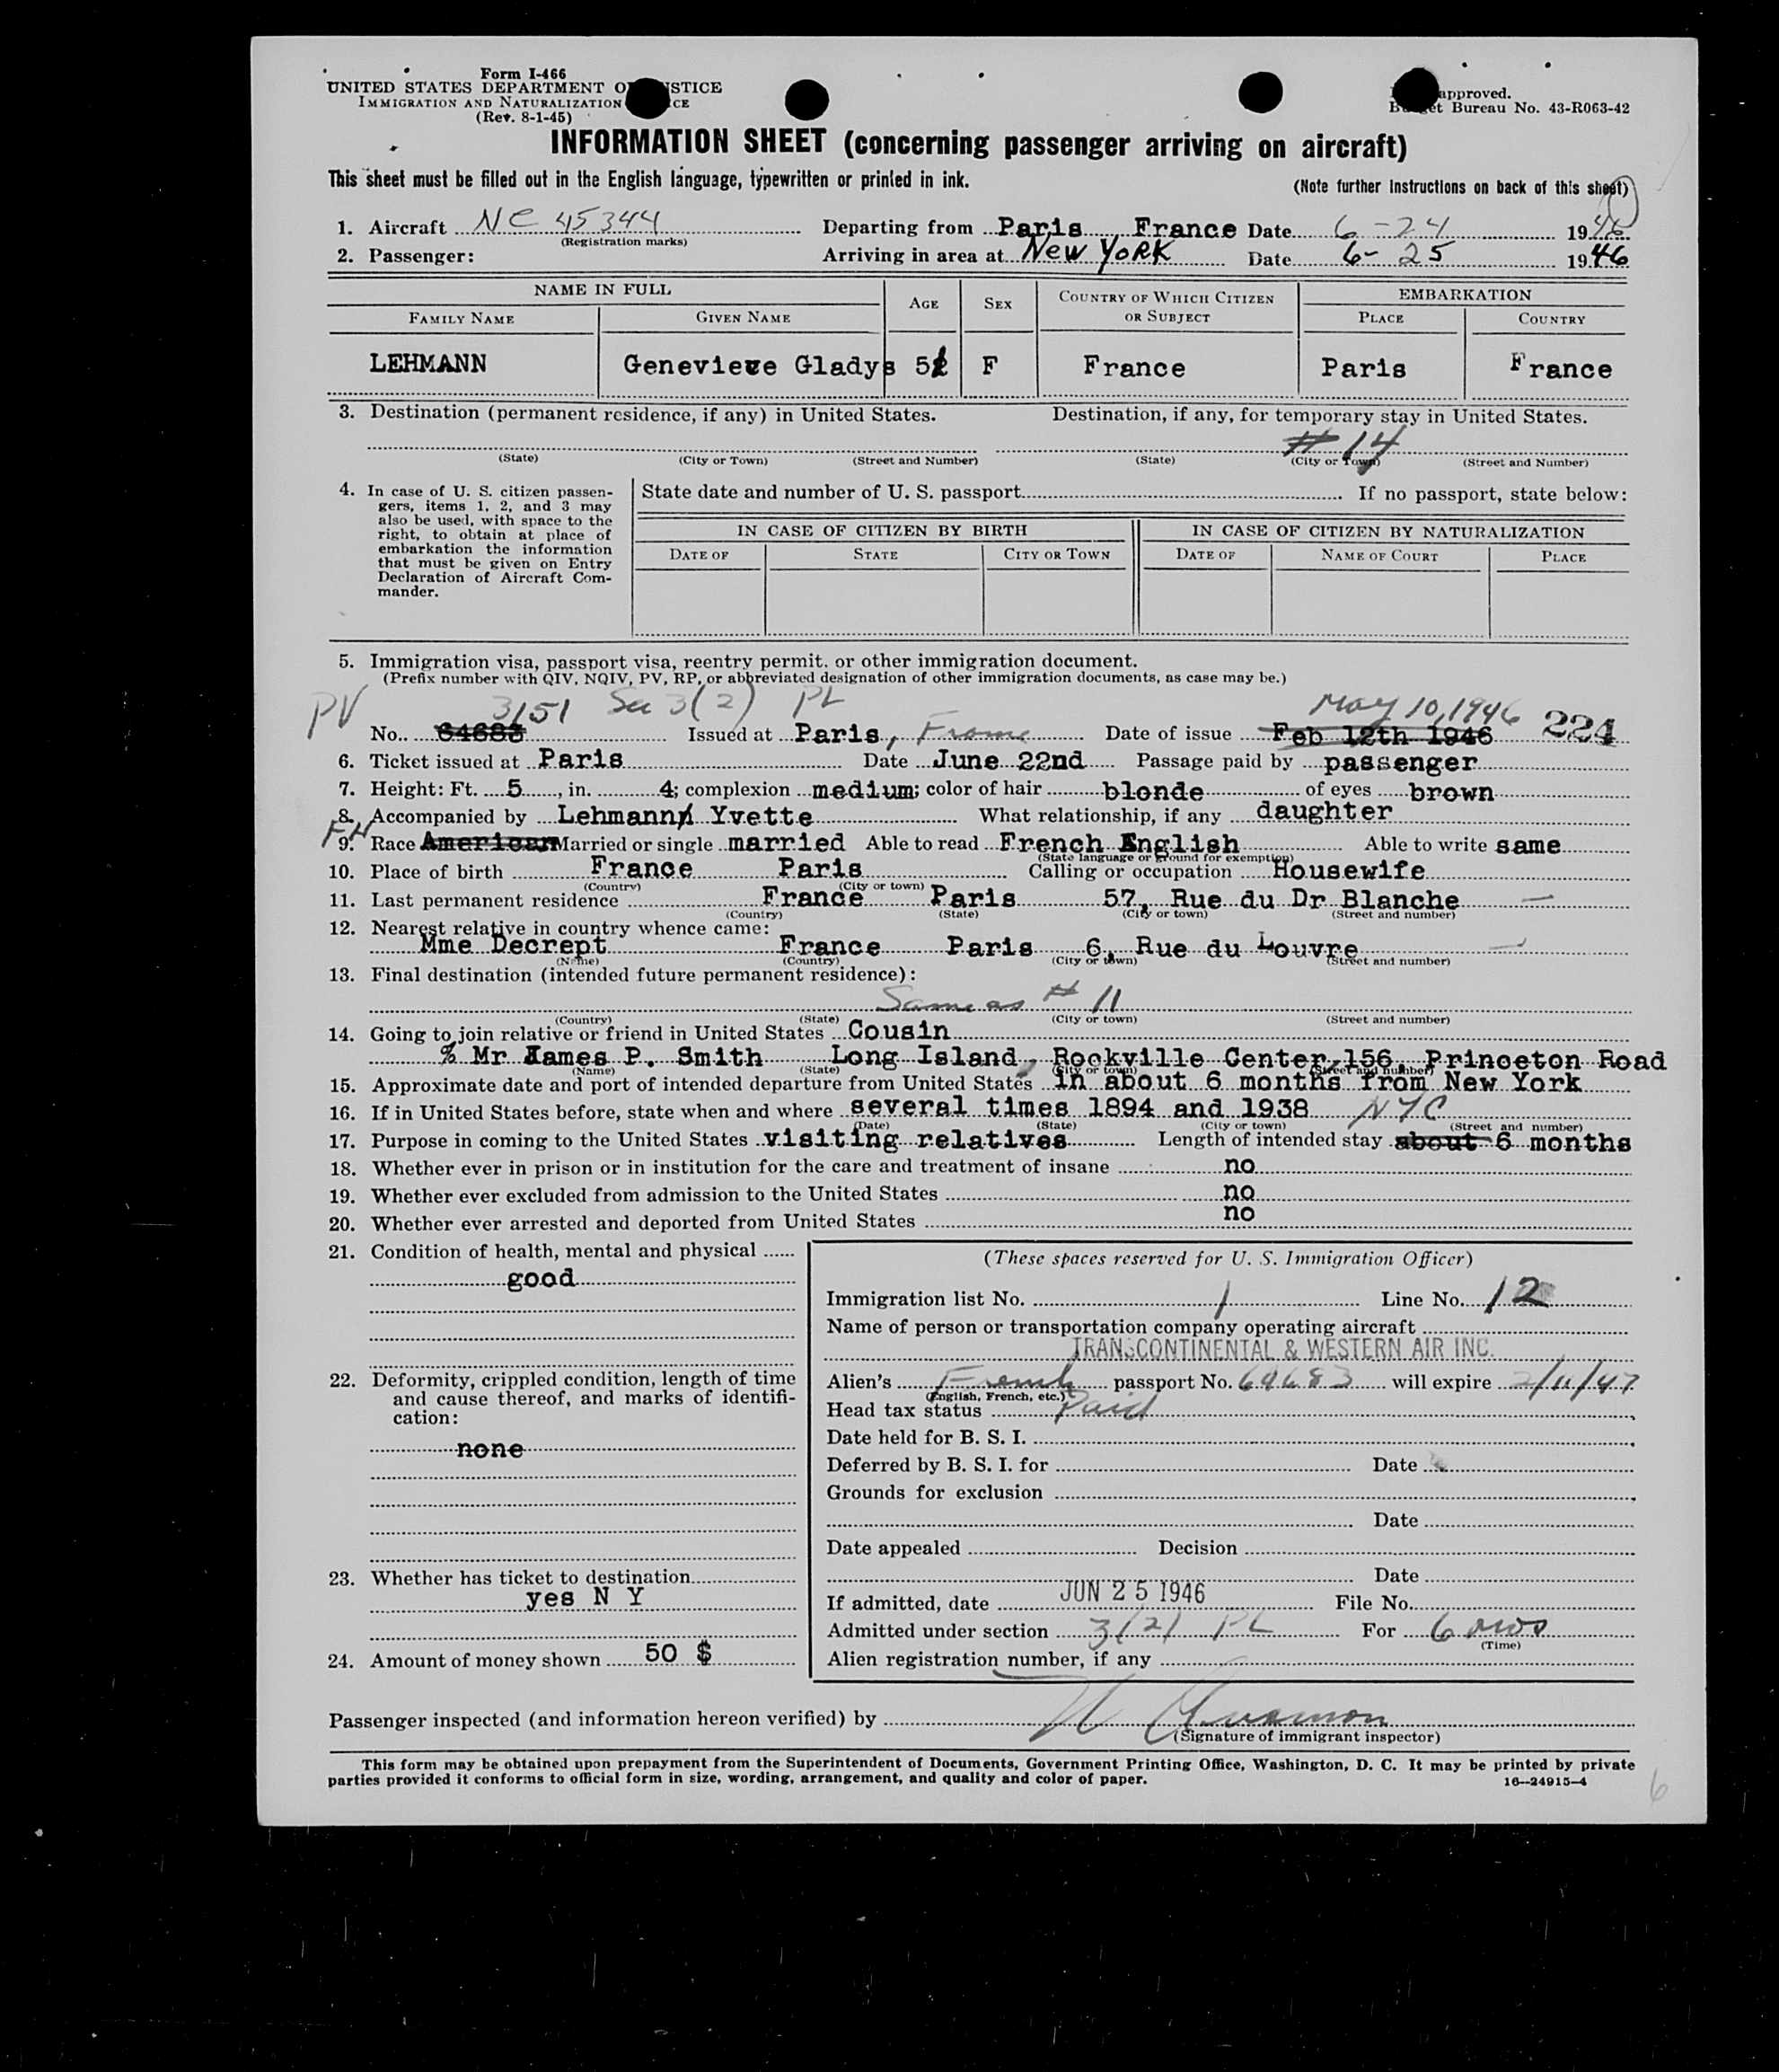 Form I-466
UNITED STATES DEPARTMENT OF JUSTICE
IMMIGRATION AND NATURALIZATION
(Rev. 8-1-45)
approved.
Bureau No. 43-R063-42
INFORMATION SHEET (concerning passenger arriving on aircraft)
This sheet must be filled out in the English language, typewritten or printed in ink.
(Note further instructions on back of this sheet)
1. Aircraft NC 45344 Departing from Paris France Date 6-24 1946
(Registration marks)
2. Passenger: Arriving in area at New York Date 6-25 1946
NAME IN FULL AGE SEX COUNTRY OF WHICH CITIZEN OR SUBJECT EMBARKATION
FAMILY NAME GIVEN NAME PLACE COUNTRY
LEHMANN Genevieve Gladys 52 F France Paris France
3. Destination (permanent residence, if any) in United States. Destination, if any, for temporary stay in United States.
# 14
(State) (City or Town) (Street and Number) (State) (City or Town) (Street and Number)
4. In case of U. S. citizen passengers, items 1, 2, and 3 may also be used, with space to the right, to obtain at place of embarkation the information that must be given on Entry Declaration of Aircraft Commander.
State date and number of U. S. passport If no passport, state below:
IN CASE OF CITIZEN BY BIRTH IN CASE OF CITIZEN BY NATURALIZATION
DATE OF STATE CITY OR TOWN DATE OF NAME OF COURT PLACE
5. Immigration visa, passport visa, reentry permit, or other immigration document.
(Prefix number with QIV, NQIV, PV, RP, or abbreviated designation of other immigration documents, as case may be.)
PV 3151 Sec 3(2) PL May 10, 1946
No. 64683 Issued at Paris, France Date of issue Feb 12th 1946 224
6. Ticket issued at Paris Date June 22nd Passage paid by passenger
7. Height: Ft. 5, in. 4; complexion medium; color of hair blonde of eyes brown
8. Accompanied by Lehmann Yvette What relationship, if any daughter
FH
9. Race American Married or single married Able to read French English Able to write same
(State language or ground for exemption)
10. Place of birth France Paris Calling or occupation Housewife
(Country) (City or town)
11. Last permanent residence France Paris 57, Rue du Dr Blanche
(Country) (State) (City or town) (Street and number)
12. Nearest relative in country whence came:
Mme Decrept France Paris 6, Rue du Louvre
(Name) (Country) (City or town) (Street and number)
13. Final destination (intended future permanent residence):
Same as # 11
(Country) (State) (City or town) (Street and number)
14. Going to join relative or friend in United States Cousin
% Mr James P. Smith Long Island, Rockville Center, 156 Princeton Road
(Name) (State) (City or town) (Street and number)
15. Approximate date and port of intended departure from United States in about 6 months from New York
16. If in United States before, state when and where several times 1894 and 1938 NYC
(Date) (State) (City or town) (Street and number)
17. Purpose in coming to the United States visiting relatives Length of intended stay about 6 months
18. Whether ever in prison or in institution for the care and treatment of insane no
19. Whether ever excluded from admission to the United States no
20. Whether ever arrested and deported from United States no
21. Condition of health, mental and physical
good
22. Deformity, crippled condition, length of time and cause thereof, and marks of identification:
none
23. Whether has ticket to destination
yes N Y
24. Amount of money shown 50 $
(These spaces reserved for U. S. Immigration Officer)
Immigration list No. 1 Line No. 12
Name of person or transportation company operating aircraft
TRANSCONTINENTAL & WESTERN AIR INC.
Alien's French passport No. 64683 will expire 2/11/47
(English, French, etc.)
Head tax status Paid
Date held for B. S. I.
Deferred by B. S. I. for Date
Grounds for exclusion
Date
Date appealed Decision
Date
If admitted, date JUN 25 1946 File No.
Admitted under section 3(2) PL For 6 mos
(Time)
Alien registration number, if any
Passenger inspected (and information hereon verified) by
(Signature of immigrant inspector)
This form may be obtained upon prepayment from the Superintendent of Documents, Government Printing Office, Washington, D. C. It may be printed by private
parties provided it conforms to official form in size, wording, arrangement, and quality and color of paper.
16—24915-4
6